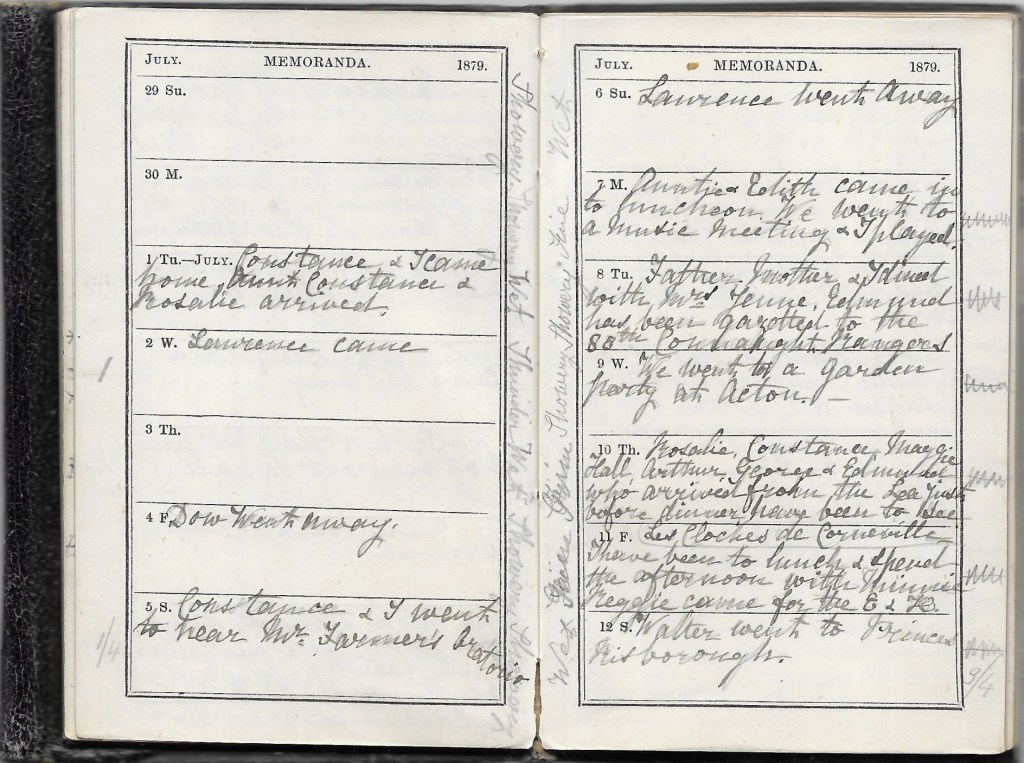 JULY. MEMORANDA. 1879.
29 Su.
30 M.
1 Tu.—JULY. Constance & I came
home. Aunt Constance &
Rosalie arrived.
2 W. Lawrence came
3 Th.
4 F. Dow went away.
5 S. Constance & I went
to hear Mr. Farmer's Oratorio
1/4
Showery. Wet Thunder Wet Showery Showery
JULY. MEMORANDA. 1879.
6 Su. Lawrence went away
7 M. Auntie & Edith came in
to luncheon. We went to
a music meeting & I played.
8 Tu. Father Mother & I dined
with Mrs Jenne. Edmund
has been gazetted to the
88th Connaught Rangers
9 W. We went to a garden
party at Acton. —
10 Th. Rosalie, Constance, Maggie
Hall, Arthur, George & Edmund
who arrived from the Lea just
before dinner have been to see
11 F. Les Cloches de Corneville
I have been to lunch & spend
the afternoon with Minnie
Reggie came for the E & H.
12 S. Walter went to Princes
Risborough.
3/4
Wet Showery Showery Fine Wet